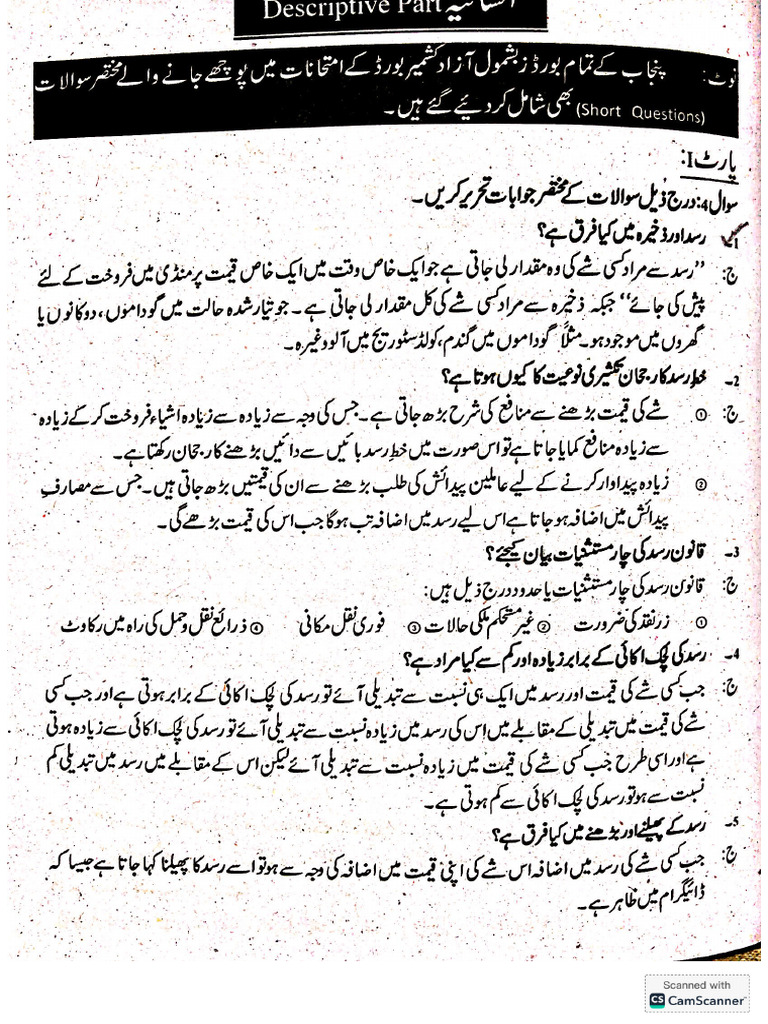 انشائیہ Descriptive Part
نوٹ: پنجاب کے تمام بورڈز بشمول آزاد کشمیر بورڈ کے امتحانات میں پوچھے جانے والے مختصر سوالات
(Short Questions) بھی شامل کر دیئے گئے ہیں۔
پارٹ I:
سوال 4: درج ذیل سوالات کے مختصر جوابات تحریر کریں۔
1۔ رسد اور ذخیرہ میں کیا فرق ہے؟
ج: ”رسد سے مراد کسی شے کی وہ مقدار لی جاتی ہے جو ایک خاص وقت میں ایک خاص قیمت پر منڈی میں فروخت کے لئے
پیش کی جائے“ جبکہ ذخیرہ سے مراد کسی شے کی کل مقدار لی جاتی ہے۔ جو تیار شدہ حالت میں گوداموں، دوکانوں یا
گھروں میں موجود ہو۔ مثلاً گوداموں میں گندم، کولڈ سٹوریج میں آلو وغیرہ۔
2۔ خط رسد کا رجحان تکثیری نوعیت کا کیوں ہوتا ہے؟
ج: ① شے کی قیمت بڑھنے سے منافع کی شرح بڑھ جاتی ہے۔ جس کی وجہ سے زیادہ سے زیادہ اشیاء فروخت کر کے زیادہ
سے زیادہ منافع کمایا جاتا ہے تو اس صورت میں خط رسد بائیں سے دائیں بڑھنے کا رجحان رکھتا ہے۔
② زیادہ پیداوار کرنے کے لیے عاملین پیدائش کی طلب بڑھنے سے ان کی قیمتیں بڑھ جاتی ہیں۔ جس سے مصارف
پیدائش میں اضافہ ہو جاتا ہے اس لیے رسد میں اضافہ تب ہوگا جب اس کی قیمت بڑھے گی۔
3۔ قانون رسد کی چار مستثنیات بیان کیجئے؟
ج: قانون رسد کی چار مستثنیات یا حدود درج ذیل ہیں:
① زرنقد کی ضرورت ② غیر مستحکم ملکی حالات ③ فوری نقل مکانی ④ ذرائع نقل و حمل کی راہ میں رکاوٹ
4۔ رسد کی لچک اکائی کے برابر زیادہ اور کم سے کیا مراد ہے؟
ج: جب کسی شے کی قیمت اور رسد میں ایک ہی نسبت سے تبدیلی آئے تو رسد کی لچک اکائی کے برابر ہوتی ہے اور جب کسی
شے کی قیمت میں تبدیلی کے مقابلے میں اس کی رسد میں زیادہ نسبت سے تبدیلی آئے تو رسد کی لچک اکائی سے زیادہ ہوتی
ہے اور اسی طرح جب کسی شے کی قیمت میں زیادہ نسبت سے تبدیلی آئے لیکن اس کے مقابلے میں رسد میں تبدیلی کم
نسبت سے ہو تو رسد کی لچک اکائی سے کم ہوتی ہے۔
5۔ رسد کے پھیلنے اور بڑھنے میں کیا فرق ہے؟
ج: جب کسی شے کی رسد میں اضافہ اس شے کی اپنی قیمت میں اضافہ کی وجہ سے ہو تو اسے رسد کا پھیلنا کہا جاتا ہے جیسا کہ
ڈائیگرام میں ظاہر ہے۔
Scanned with
CS CamScanner